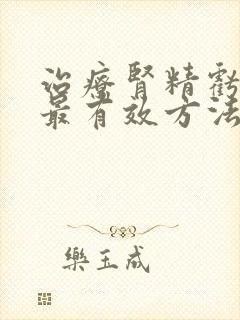 治療腎精虧
最有效方法
樂玉成